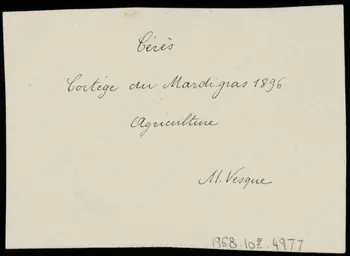 Cérès
Cortége du Mardi gras 1896
Agriculture
M. Vesque
1958.102.4977